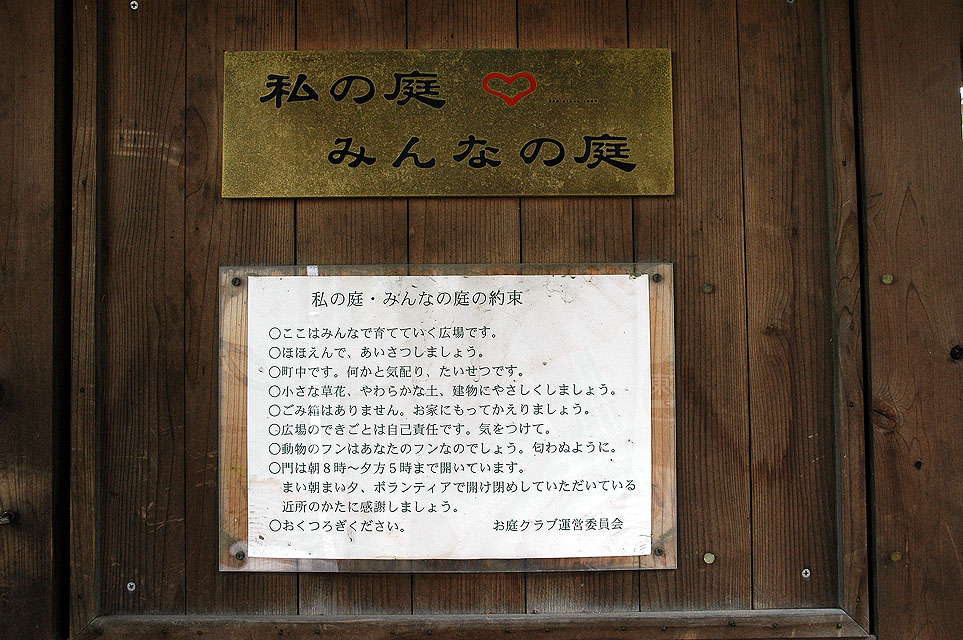 私の庭
みんなの庭
私の庭・みんなの庭の約束
○ここはみんなで育てていく広場です。
○ほほえんで、あいさつしましょう。
○町中です。何かと気配り、たいせつです。
○小さな草花、やわらかな土、建物にやさしくしましょう。
○ごみ箱はありません。お家にもってかえりましょう。
○広場のできごとは自己責任です。気をつけて。
○動物のフンはあなたのフンなのでしょう。匂わぬように。
○門は朝8時〜夕方5時まで開いています。
まい朝まい夕、ボランティアで開け閉めしていただいている
近所のかたに感謝しましょう。
○おくつろぎください。 お庭クラブ運営委員会